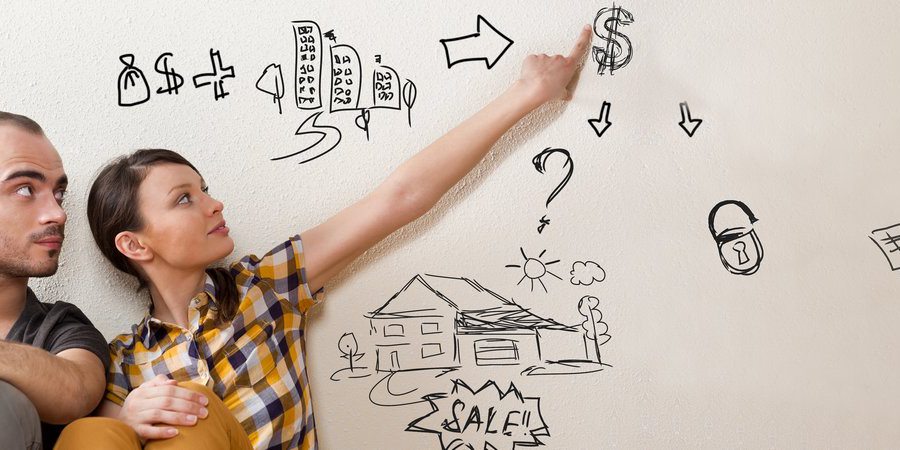 $
$
?
SALE!!